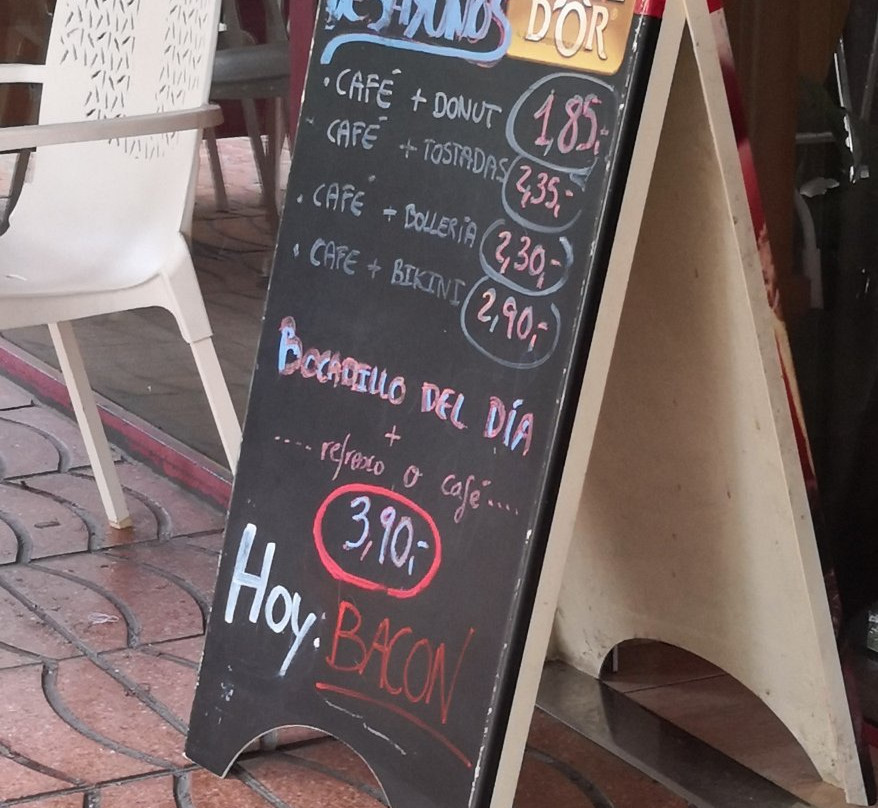 DESAYUNOS
D'OR
· CAFÉ + DONUT 1,85,-
CAFÉ + TOSTADAS 2,35,-
· CAFÉ + BOLLERIA 2,30,-
· CAFE + BIKINI 2,90,-
BOCADILLO DEL DÍA
+
.... refresco o café ....
3,90,-
Hoy: BACON